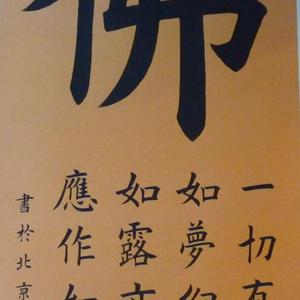 佛
一切有
如夢幻
如露亦
應作如
書於北京